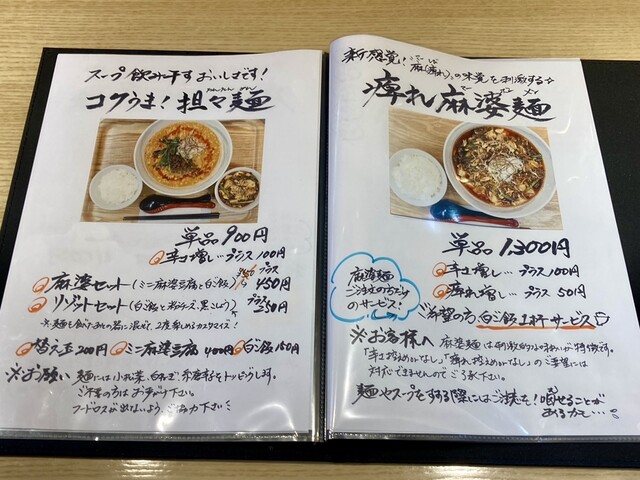 スープ飲み干すおいしさです!
コクうま!担々麺
たんたん めん
単品 900円
辛さ増し…プラス 100円
麻婆セット(ミニ麻婆豆腐と白ご飯)プラス 450円
リゾットセット(白ご飯と粉チーズ、黒こしょう)プラス 250円
※麺を食べた後の器に混ぜて、2度楽しめるカスタマイズ!
替え玉 200円 ミニ麻婆豆腐 400円 白ご飯 150円
※お願い 麺には小松菜、白ねぎ、糸唐辛子をトッピングします。
ご不要の方はお声がけ下さい。
フードロスが出ないよう、ご協力下さい
新感覚!麻(痺れ)の味覚を刺激する☆
痺れ麻婆麺
マー ボー メン
単品 1,300円
辛さ増し…プラス 100円
痺れ増し…プラス 50円
麻婆麺
ご注文の方だけ
のサービス!
ご希望の方 白ご飯1杯サービス
※お客様へ 麻婆麺は刺激的な味わいが特徴です。
「辛さ控えめかなし」「痺れ控えめかなし」のご要望には
対応できませんのでご了承下さい。
麺やスープをすする際にはご注意を!噎せることが
あるかも…